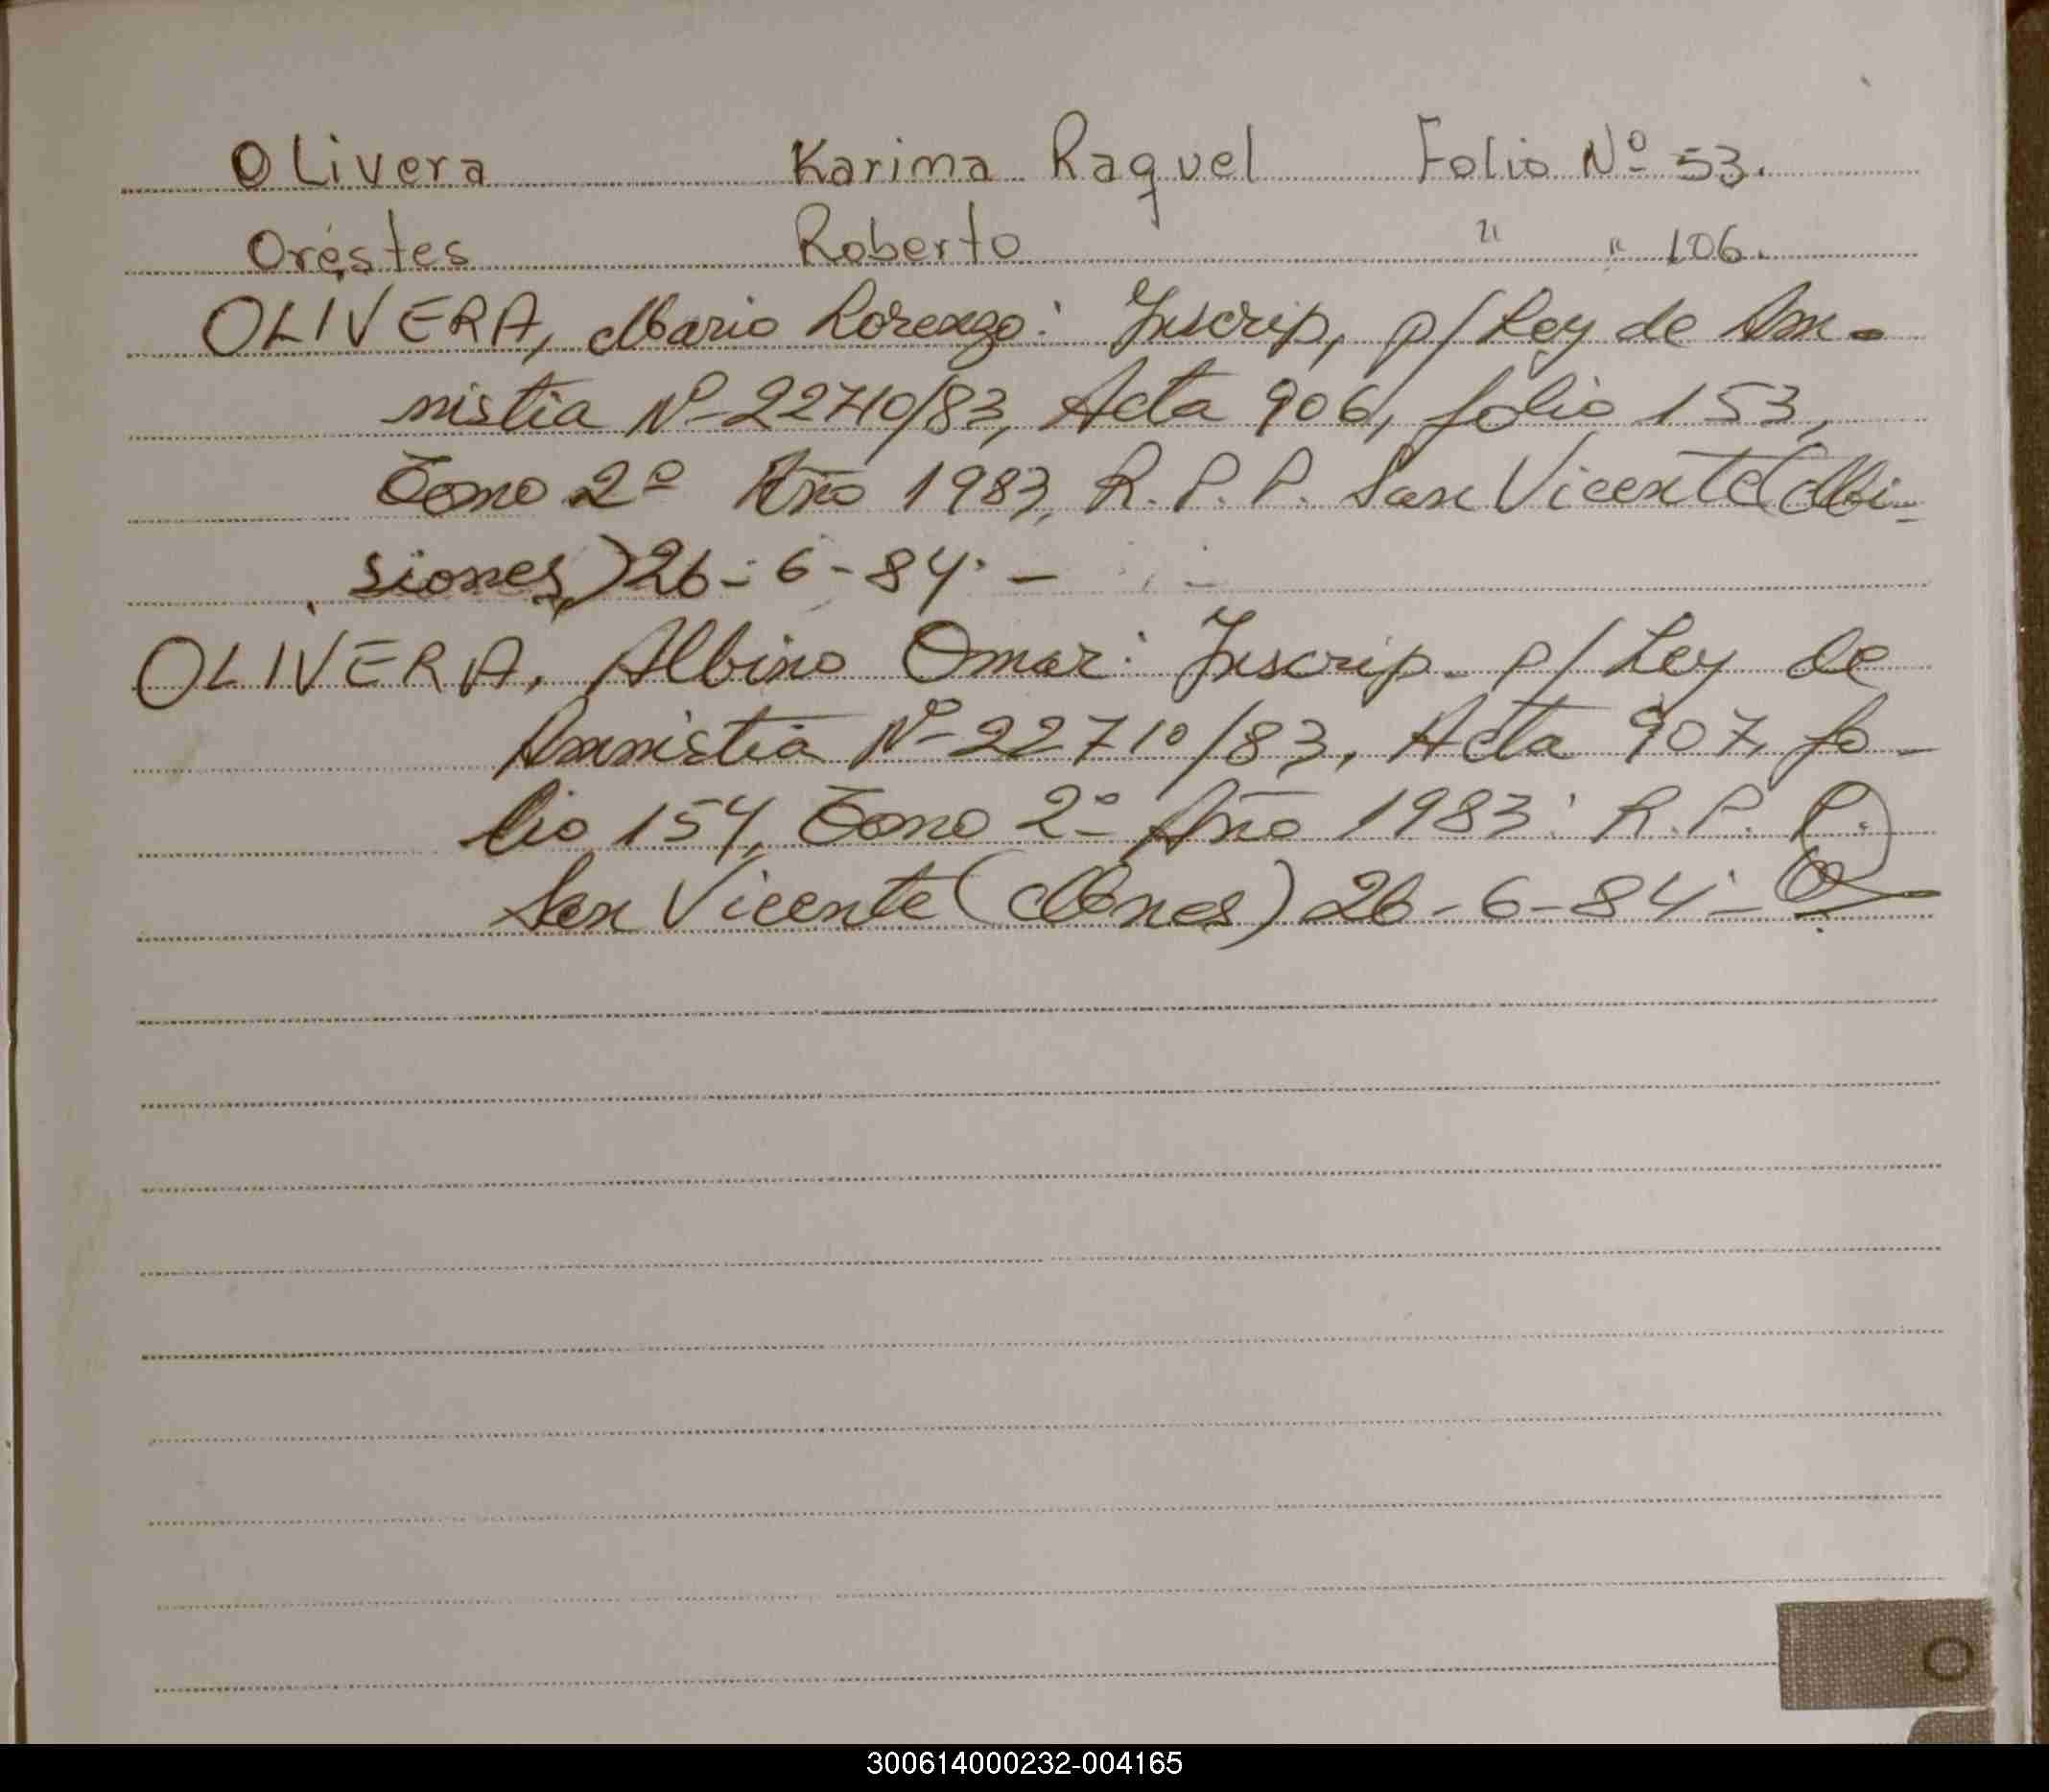 Olivera Karima Raquel Folio Nº 53.
Oréstes Roberto " " 106.
OLIVERA, Mario Lorenzo: Inscrip, p/ Ley de Am-
nistia Nº 22710/83, Acta 906, folio 153,
Tomo 2º Año 1983, R. P. P. San Vicente (Mi-
siones) 26-6-84.-
OLIVERA, Albino Omar: Inscrip. p/ Ley de
Amnistia Nº 22710/83, Acta 907, fo-
lio 154, Tomo 2º Año 1983: R. P. P.
San Vicente (Mnes) 26-6-84.-
O
300614000232-004165